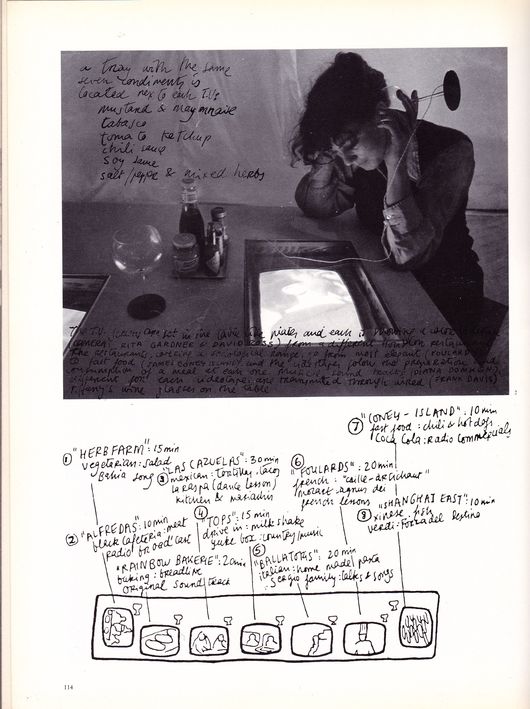 a tray with the same
seven condiments is
located nex to each T.Vs
mustard & mayonnaise
tabasco
tomato ketchup
chili sauce
soy sauce
salt/pepper & mixed herbs
The T.V. set in the table like plates and each is showing a
(CAMERA) RITA GARDNER & DAVID ROSS) from a different Houston restaurant
The restaurants, covering a sociological range, go from most elegant (FOULARDS)
to fast food (JAMES CONEY ISLAND) and the videotapes follow the preparation and
consumption of a meal at each one
different for each videotape, are transmitted through wired (FRANK DAVIS)
wine glasses on the table
⑦ "CONEY-ISLAND": 10 min
fast food: chili & hot dogs
Coca Cola: Radio Commercials
① "HERB FARM": 15 min
vegetarian: salad
Bahia song
③ "LAS CAZUELAS": 30 min
mexican: tortillas, tacos
la raspa (dance lesson)
kitchen & mariachis
⑥ "FOULARDS": 20 min
french:
mozart: agnus dei
french lessons
⑧ "SHANGHAI EAST": 10 min
xinese: fish
verdi: Forza del destino
② "ALFREDAS": 10 min
black cafeteria: meat
radio broadcast
④ "TOPS": 15 min
drive in: milk shake
juke box: country/music
"RAINBOW BAKERIE": 20 min
baking: breadline
original sound track
⑤ "BALLATORIS": 20 min
italian: home made pasta
Sergio family: talks & songs
114